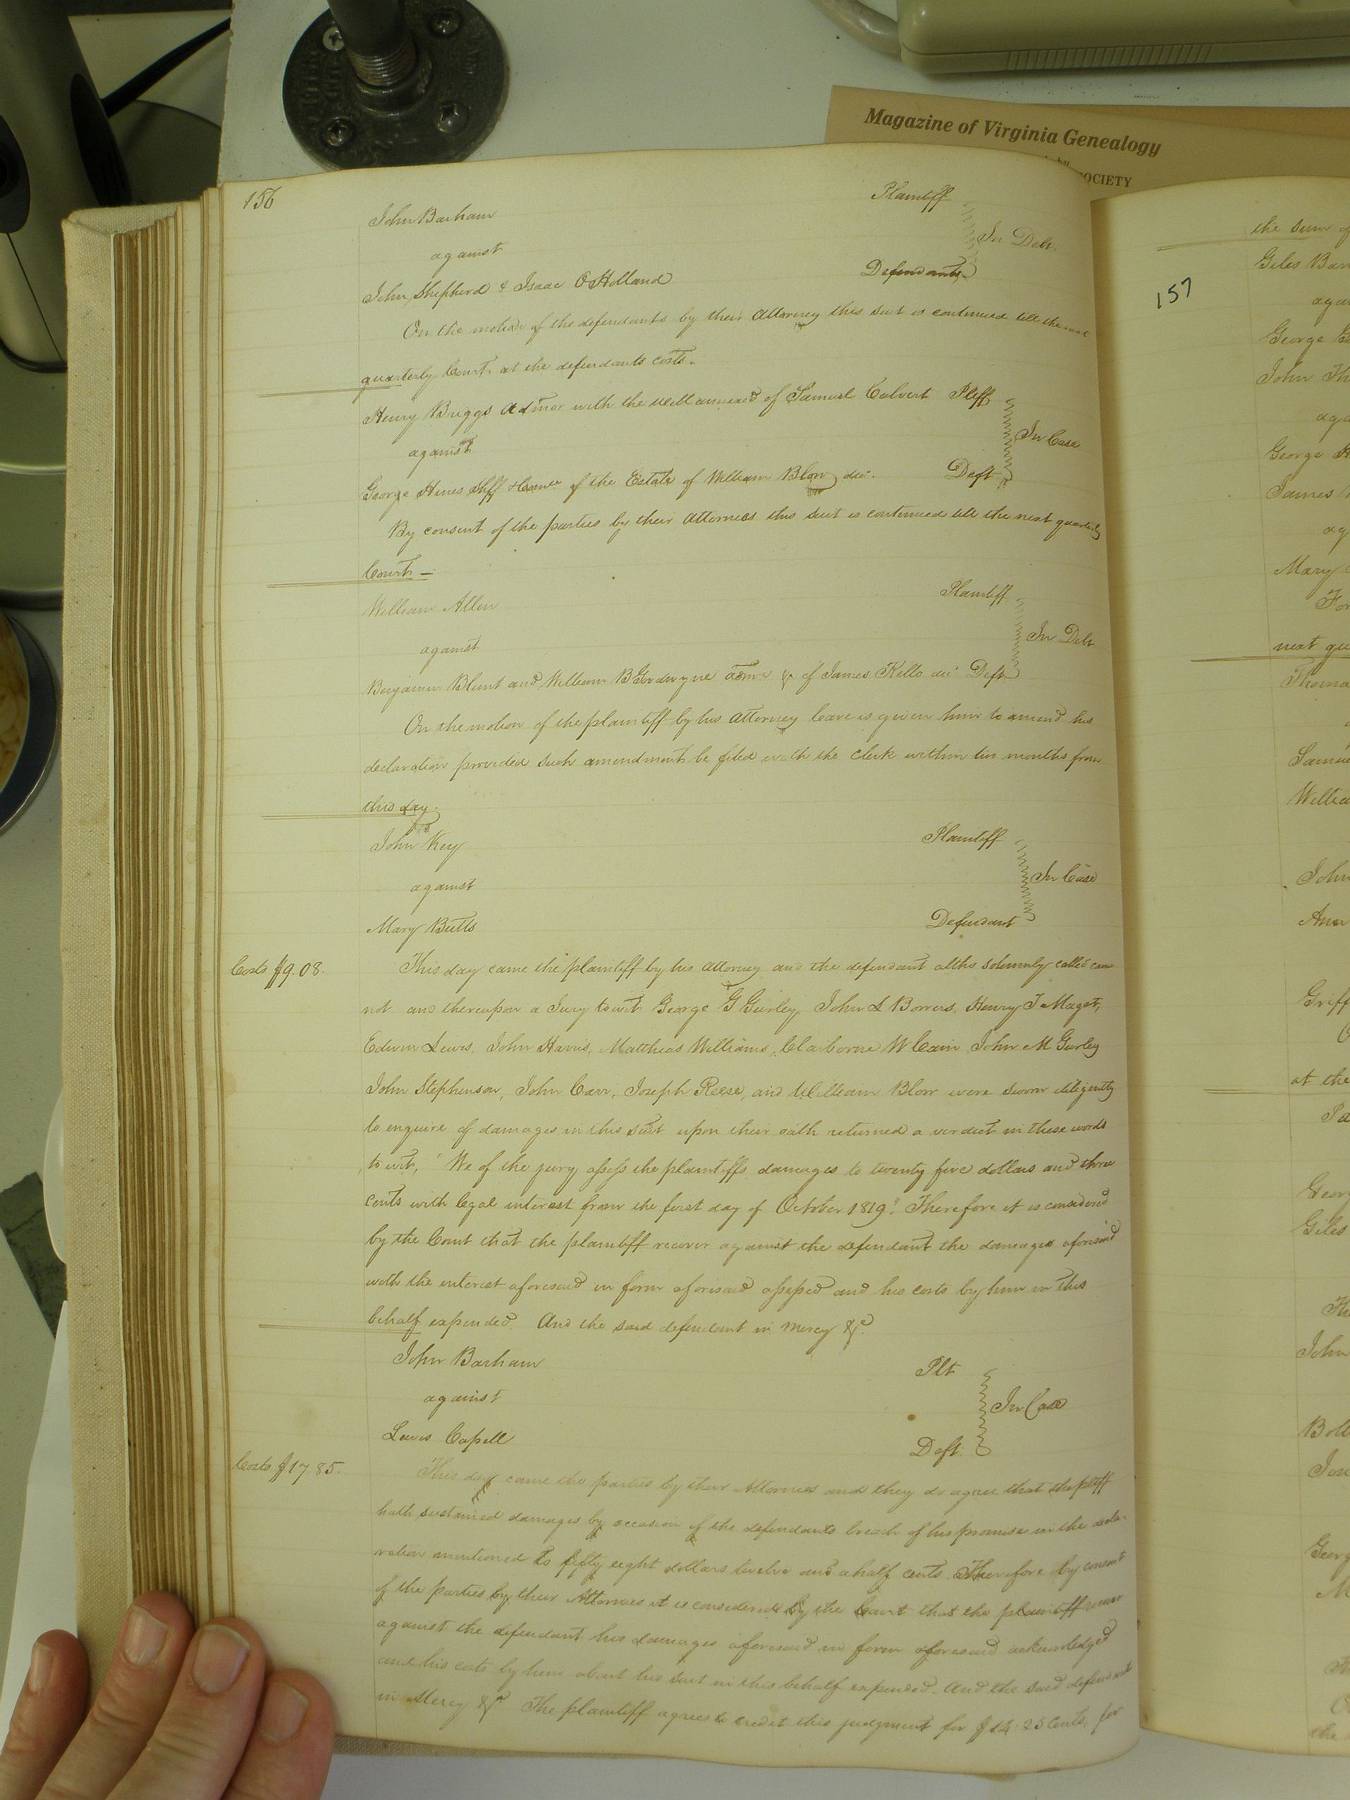 Magazine of Virginia Genealogy
SOCIETY
156
John Barham Plaintiff
against In Debt
John Shepherd & Isaac O Holland Defendants
On the motion of the defendants by their Attorney this suit is continued till the next
quarterly Court at the defendants costs.
Henry Briggs Admor with the will annexed of Samuel Calvert Pltff
against In Case
George Hines Shff & Comee of the Estate of William Blow dec. Deft
By consent of the parties by their Attornies this suit is continued till the next quarterly
Court —
William Allen Plaintiff
against In Debt
Benjamin Blunt and William B Goodwyne admr &c of James Kello dec Deft
On the motion of the plaintiff by his Attorney leave is given him to amend his
declaration provided such amendment be filed with the Clerk within two months from
this day.
John Key Plaintiff
against In Case
Mary Butts Defendant
Costs $9.08. This day came the plaintiff by his Attorney and the defendant altho solemnly called came
not and thereupon a Jury towit George G Gurley, John L Bowers, Henry T Maget,
Edwin Lewis, John Harris, Matthias Williams, Claiborne W Cain, John M Gurley
John Stephenson, John Carr, Joseph Reese, and William Blow were sworn diligently
to enquire of damages in this suit upon their oath returned a verdict in these words
to wit, "We of the jury assess the plaintiffs damages to twenty five dollars and three
cents with legal interest from the first day of October 1819." Therefore it is considered
by the Court that the plaintiff recover against the defendant the damages aforesaid
with the interest aforesaid in form aforesaid assessed and his costs by him in this
behalf expended. And the said defendant in mercy &c
John Barham Plt
against In Case
Lewis Capell Deft
Costs $17.85. This day came the parties by their Attornies and they do agree that the pltff
hath sustained damages by occasion of the defendants breach of his promise in the decla-
ration mentioned to fifty eight dollars twelve and a half cents. Therefore by consent
of the parties by their Attornies it is considered by the Court that the plaintiff recover
against the defendant his damages aforesaid in form aforesaid acknowledged
and his costs by him about his suit in this behalf expended. And the said defendant
in Mercy &c The plaintiff agrees to credit this judgment for $14.25 Cents, for
157
the sum of
Giles
George
John
George
James
Mary
next
Thoma
Willia
John
Ann
at the
Giles
John